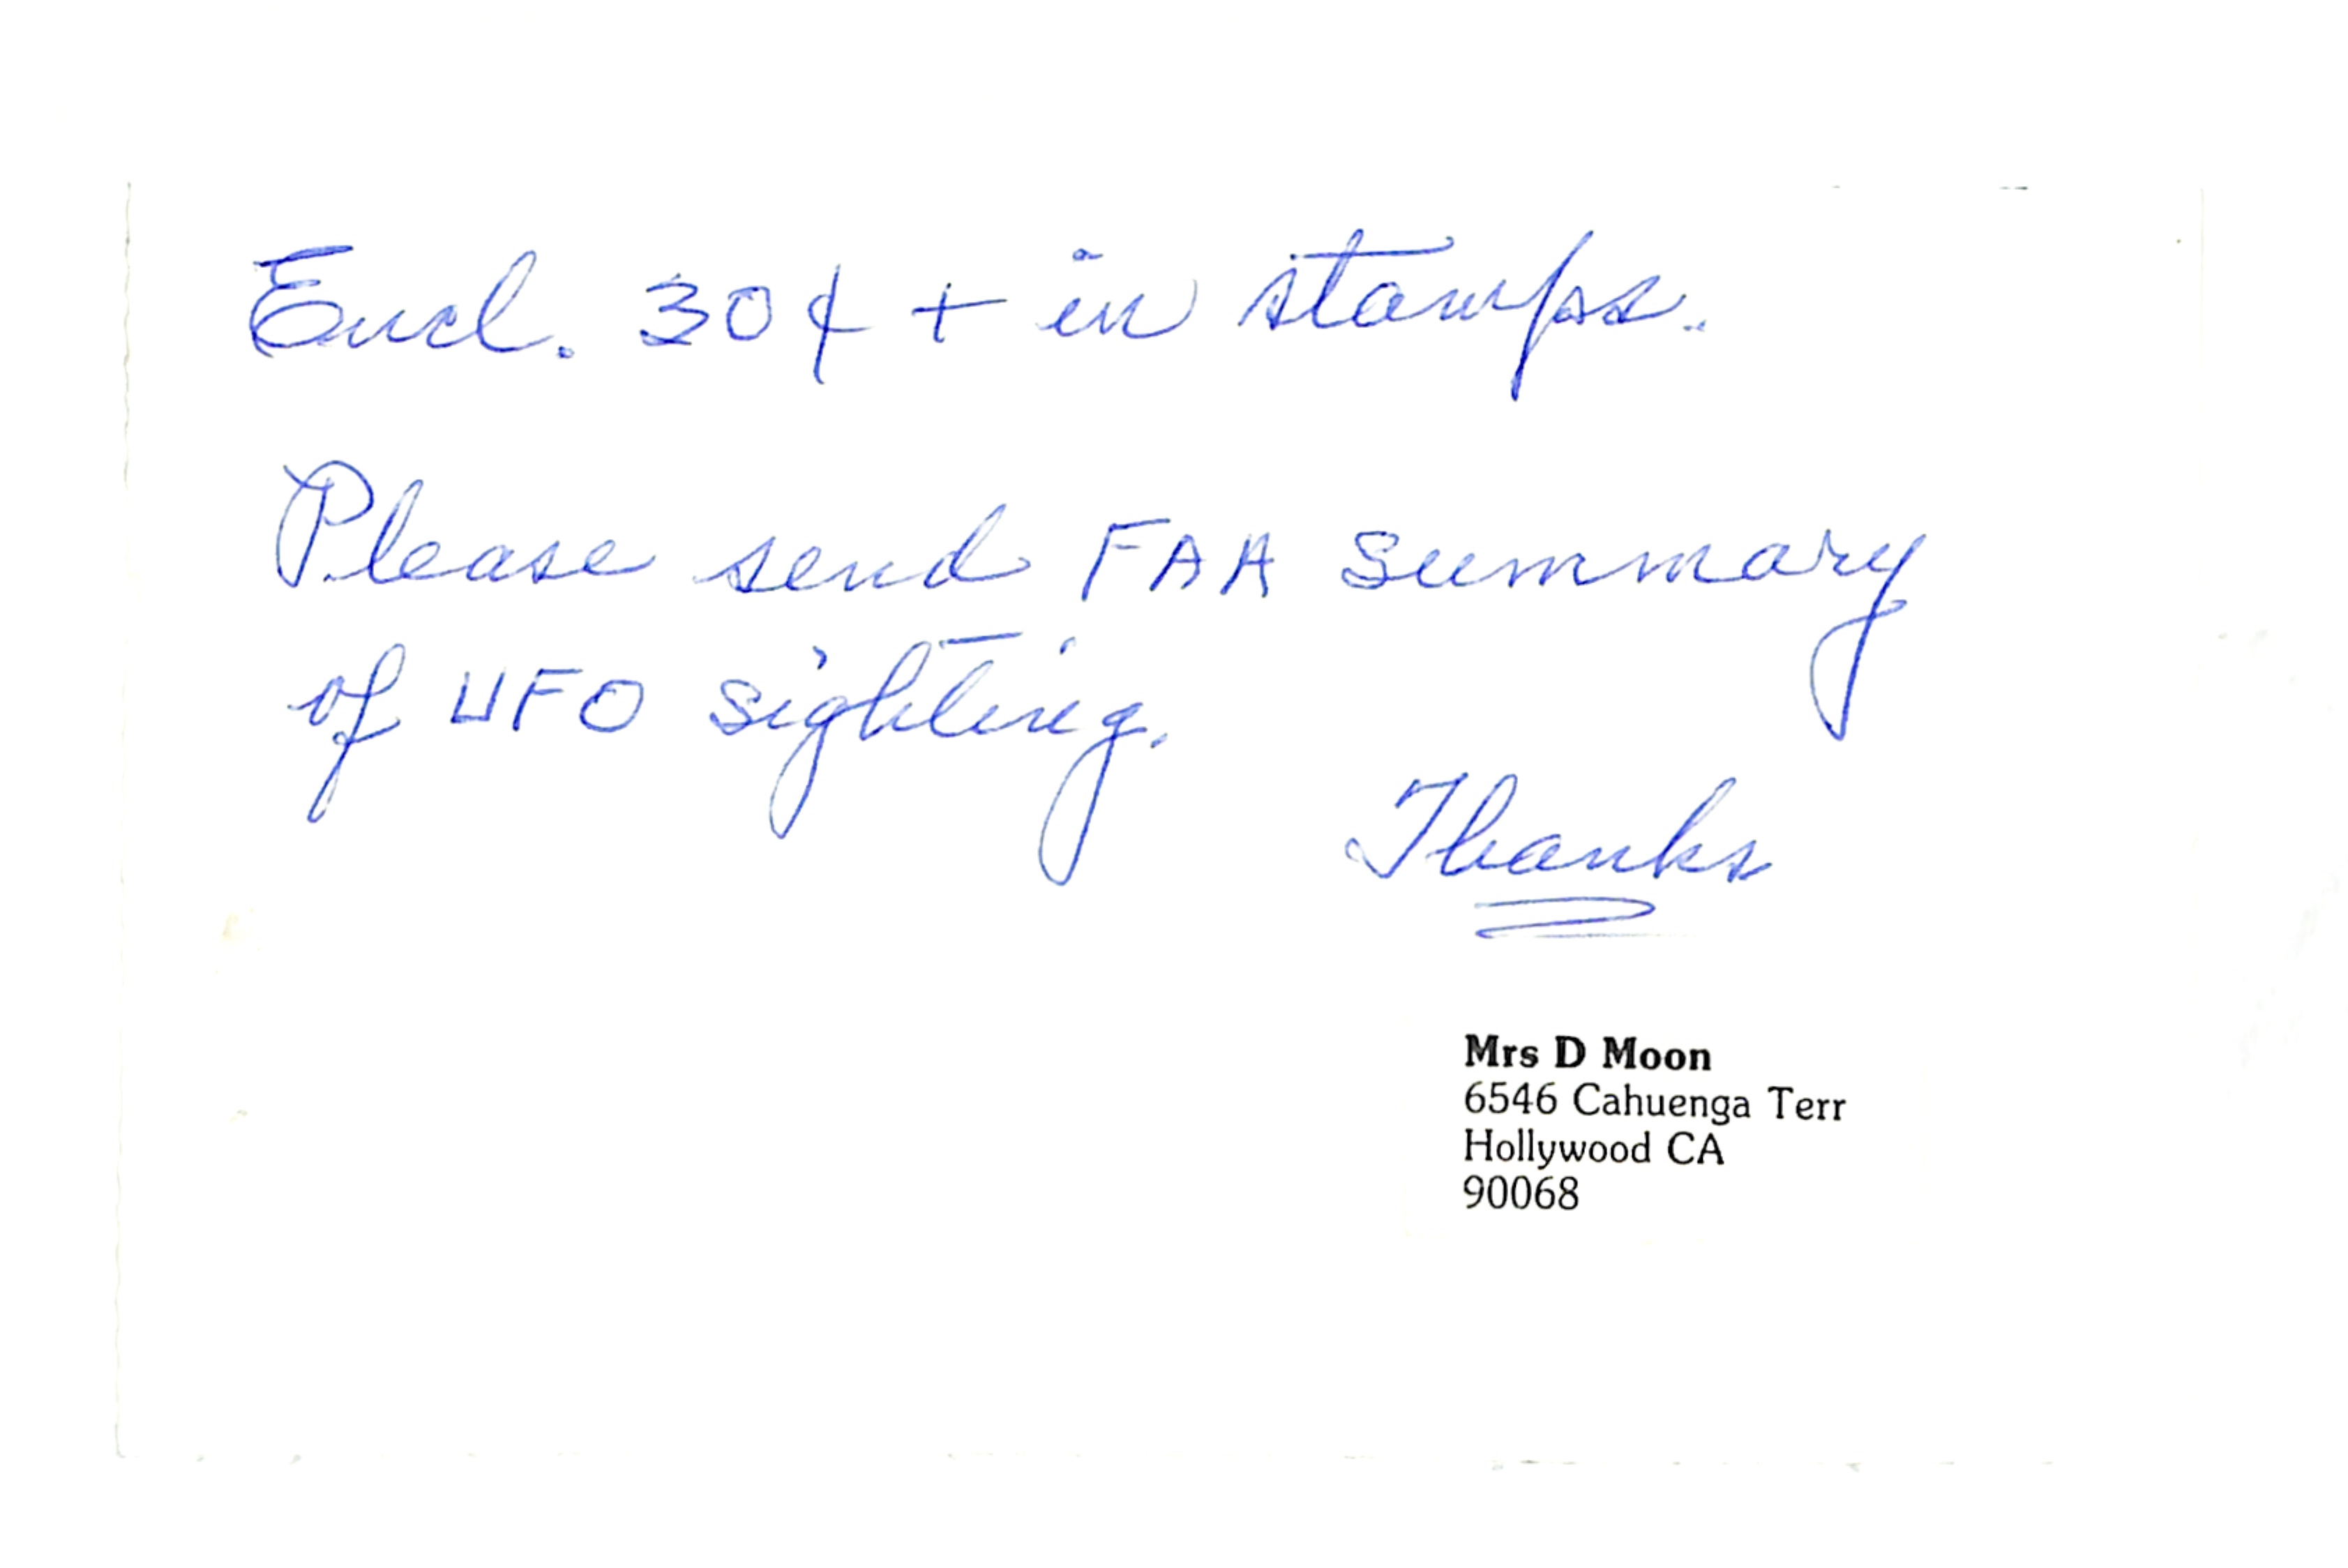 Encl. 30¢ + in stamps.
Please send FAA summary
of UFO sighting.
Thanks
Mrs D Moon
6546 Cahuenga Terr
Hollywood CA
90068